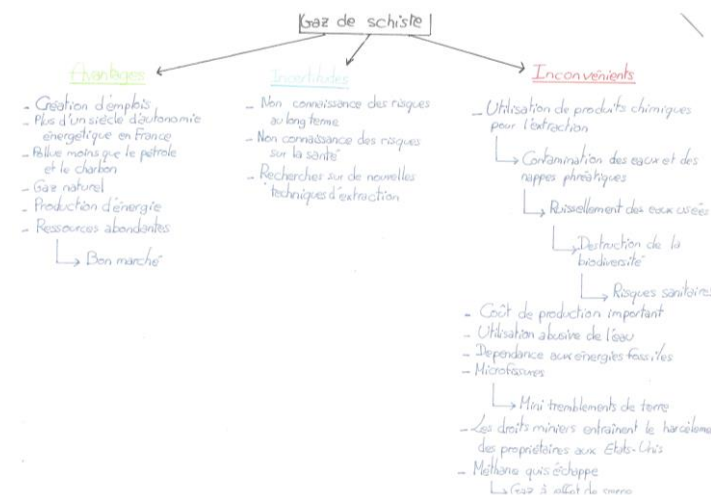 Gaz de schiste
Avantages
- Création d'emplois
- Plus d'un siècle d'autonomie
énergétique en France
- Pollue moins que le pétrole
et le charbon
- Gaz naturel
- Production d'énergie
- Ressources abondantes
↳ Bon marché
Incertitudes
- Non connaissance des risques
au long terme
- Non connaissance des risques
sur la santé
- Recherches sur de nouvelles
techniques d'extraction
Inconvénients
- Utilisation de produits chimiques
pour l'extraction
↳ Contamination des eaux et des
nappes phréatiques
↳ Ruissellement des eaux usées
↳ Destruction de la
biodiversité
↳ Risques sanitaires
- Coût de production important
- Utilisation abusive de l'eau
- Dépendance aux énergies fossiles
- Microfissures
↳ Mini tremblements de terre
- Les droits miniers entraînent le harcèleme
des propriétaires aux Etats-Unis
- Méthane qui s'échappe
↳ Gaz à effet de serre